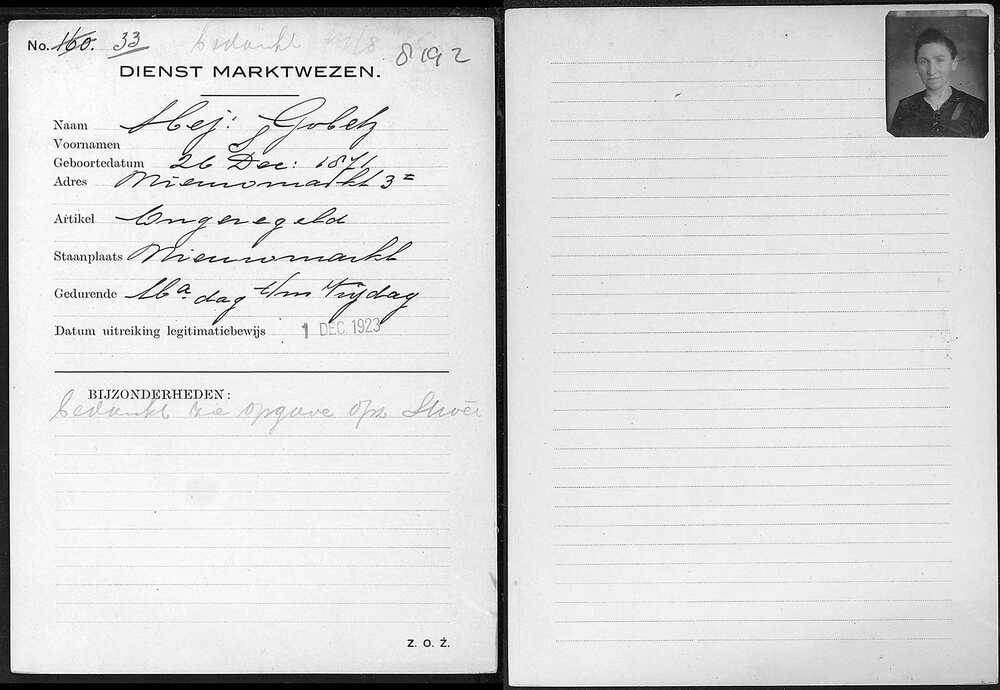 No. 160. 33 bedankt 8192
DIENST MARKTWEZEN.
Naam Mej: S Gobetz
Voornamen
Geboortedatum 26 Dec: 1871
Adres Nieuwmarkt 3=
Artikel Ongeregeld
Staanplaats Nieuwmarkt
Gedurende Ma.dag t/m Vrijdag
Datum uitreiking legitimatiebewijs 1 DEC. 1923
BIJZONDERHEDEN:
bedankt opgave
Z. O. Z.